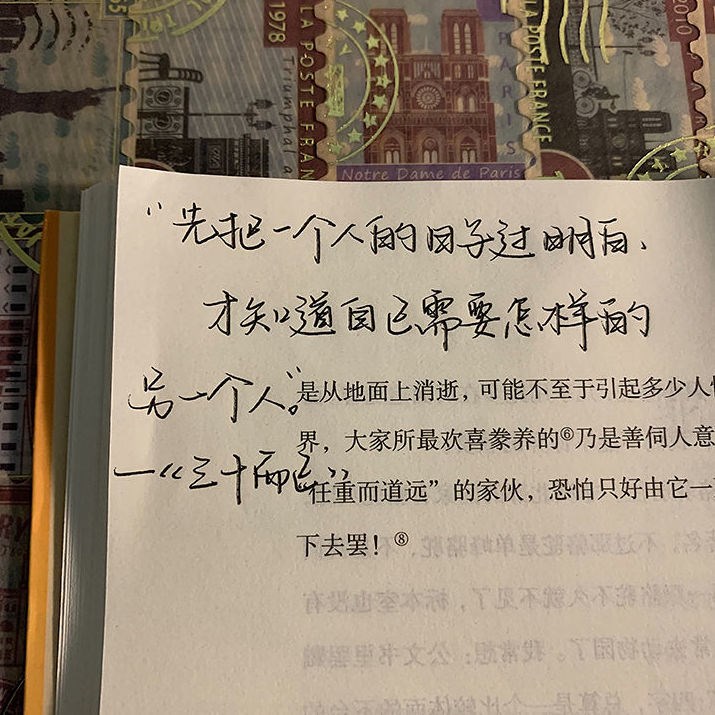 1978
LA POSTE FRAN
Triumphal a
PARIS
Notre Dame de Paris
LA POSTE FRANCE
2010
“先把一个人的日子过明白、
才知道自己需要怎样的
另一个人”。
—《三十而已》
是从地面上消逝，可能不至于引起多少人
界，大家所最欢喜豢养的⑥乃是善伺人意
“任重而道远”的家伙，恐怕只好由它一
下去罢！⑧